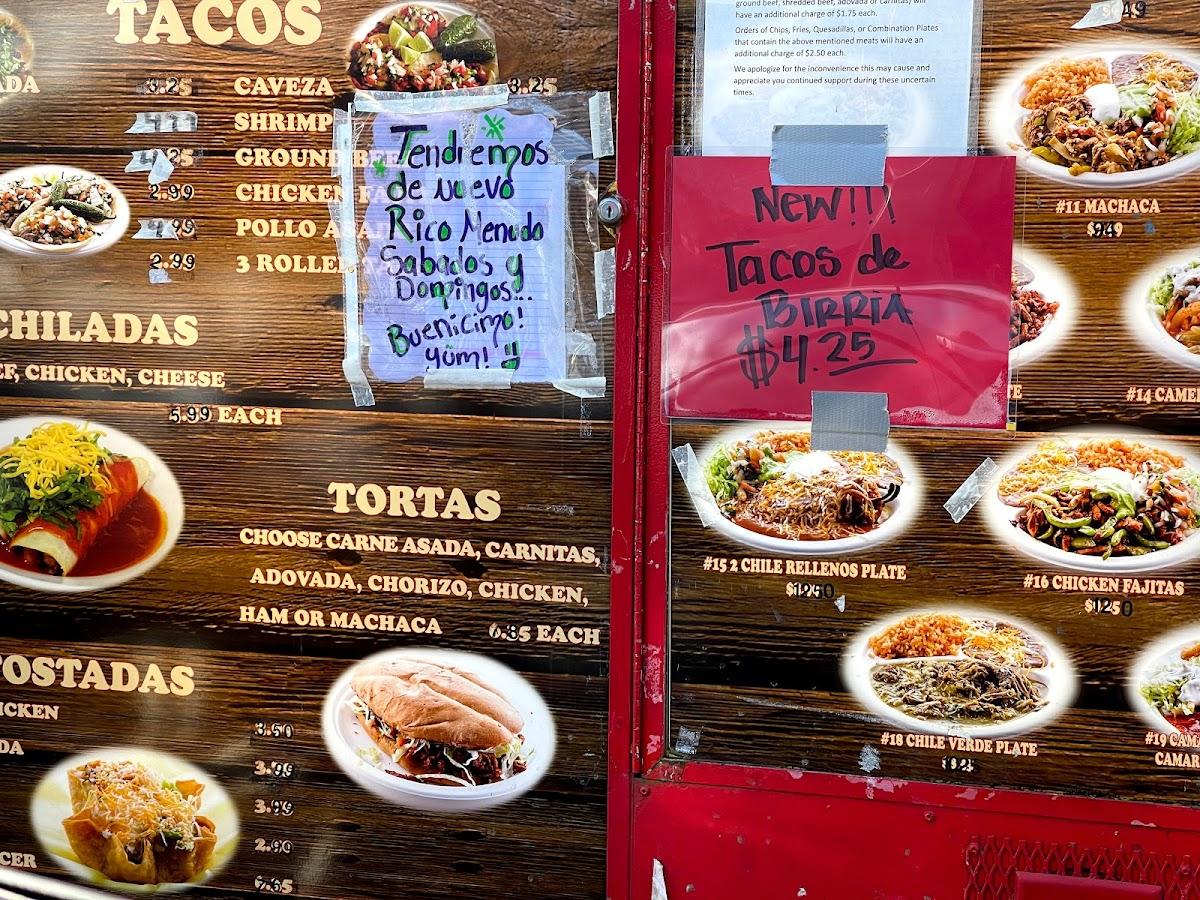 TACOS
ADA 3.25
CAVEZA 3.25
SHRIMP
GROUND BEE
CHICKEN FA
2.99
POLLO ASA
3 ROLLE
2.99
Tendremos
de nuevo
Rico Menudo
Sabados y
Domingos...
Buenicimo!
yüm!
CHILADAS
EF, CHICKEN, CHEESE
5.99 EACH
TORTAS
CHOOSE CARNE ASADA, CARNITAS,
ADOVADA, CHORIZO, CHICKEN,
HAM OR MACHACA 6.85 EACH
TOSTADAS
ICKEN
3.50
DA
3.99
3.99
2.90
CER
ground beef, shredded beef, adovada or carnitas) will
have an additional charge of $1.75 each.
Orders of Chips, Fries, Quesadillas, or Combination Plates
that contain the above mentioned meats will have an
additional charge of $2.50 each.
We apologize for the inconvenience this may cause and
appreciate you continued support during these uncertain
times.
New!!!
Tacos de
BIRRIA
$4.25
#11 MACHACA
TE
#14 CAME
#15 2 CHILE RELLENOS PLATE
#16 CHICKEN FAJITAS
#18 CHILE VERDE PLATE
#19 CAMA
CAMAR